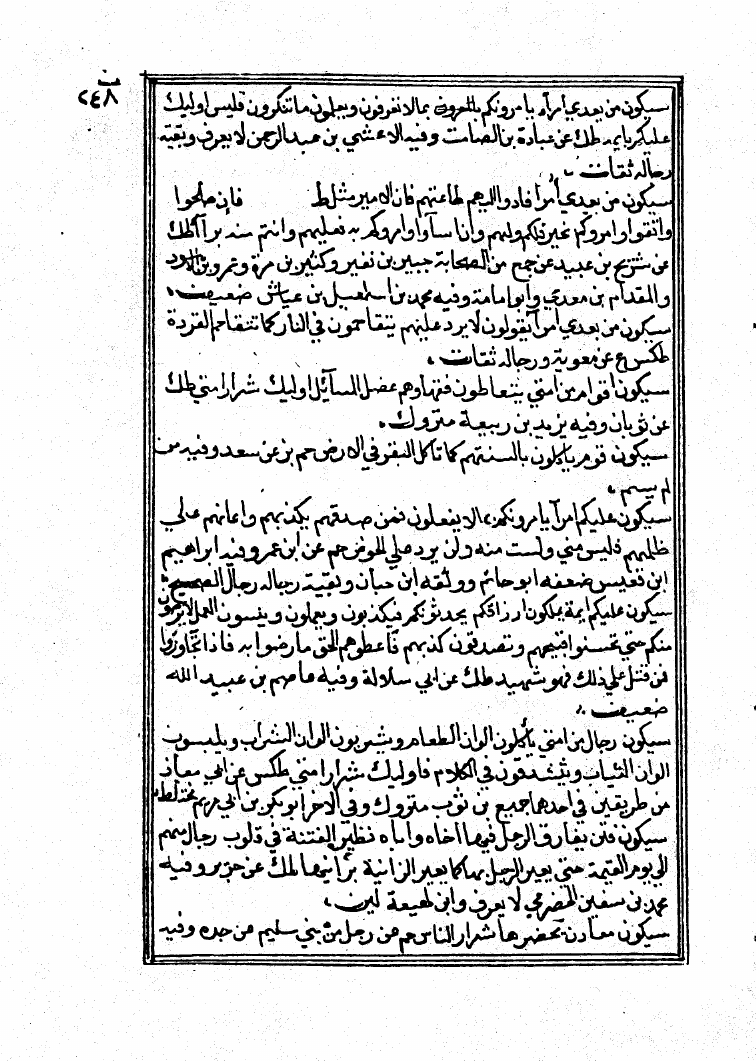 ب
٢٤٨
سيكون من بعدي أمراء يامرونكم بالمعروف بما لا تعرفون ويعملون ما تنكرون فليس اوليك
عليكم بايمة طك عن عبادة بن الصامت وفيه الاعشي بن عبد الرحمن لا يعرف وبقية
رجاله ثقات
سيكون من بعدي أمرا فادوا اليهم طاعتهم فان الامير مثل فإن صلحوا
واتقوا وامروكم بخير فلكم ولهم وان اسآوا وامروكم به فعليهم وانتم منه برآ طك
عن شريح بن عبيد عن جمع من الصحابة جبير بن نفير وكثير بن مرة وعمرو بن الاسود
والمقدام بن معدي وابو امامة وفيه محمد بن اسمعيل بن عياش ضعيف
سيكون من بعدي أمرآ يقولون لا يرد عليهم يتقاحمون في النار كما تتقاحم القردة
طكس ع عن معوية ورجاله ثقات
سيكون اقوام من امتي يتعاطون فقهاوهم عضل السآئل اوليك شرار امتي طك
عن ثوبان وفيه يزيد بن ربيعة متروك
سيكون قوم ياكلون بالسنتهم كما تاكل البقر في الارض حم بز عن سعد وفيه من
لم يسم
سيكون عليكم امرآ يامرونكم بما لا يفعلون فمن صدقهم بكذبهم واعانهم علي
ظلمهم فليس مني ولست منه ولن يرد علي الحوض حم عن ابن عمر وفيه ابراهيم
ابن قعيس ضعفه ابو حاتم ووثقه ابن حبان وبقية رجاله رجال الصحيح
سيكون عليكم ايمة يملكون ارزاقكم يحدثونكم فيكذبون ويعملون ويسؤن العمل لا يرضون
منكم حتي تحسنوا قبيحهم وتصدقون كذبهم فاعطوهم الحق ما رضوا به فاذا تجاوزوا
فمن قتل علي ذلك فهو شهيد طك عن ابي سلالة وفيه عاصم بن عبيد الله
ضعيف
سيكون رجال من امتي ياكلون الوان الطعام ويشربون الوان الشراب ويلبسون
الوان الثياب ويتشدقون في الكلام فاوليك شرار امتي طكس عن ابي
من طريقين في احدها جميع بن ثوب متروك وفي الاخر ابو بكر بن ابي مريم مختلط
سيكون فتن يفارق الرجل فيها اخاه واباه تطير الفتنة في قلوب رجال منهم
الي يوم القيمة حتي يعير الرجل بها كما يعير الزانية بزانيها طك عن وفيه
محمد بن سفين الحضرمي لا يعرف وابن لهيعة لين
سيكون معادن يحضرها شرار الناس حم عن رجل من بني سليم عن جده وفيه